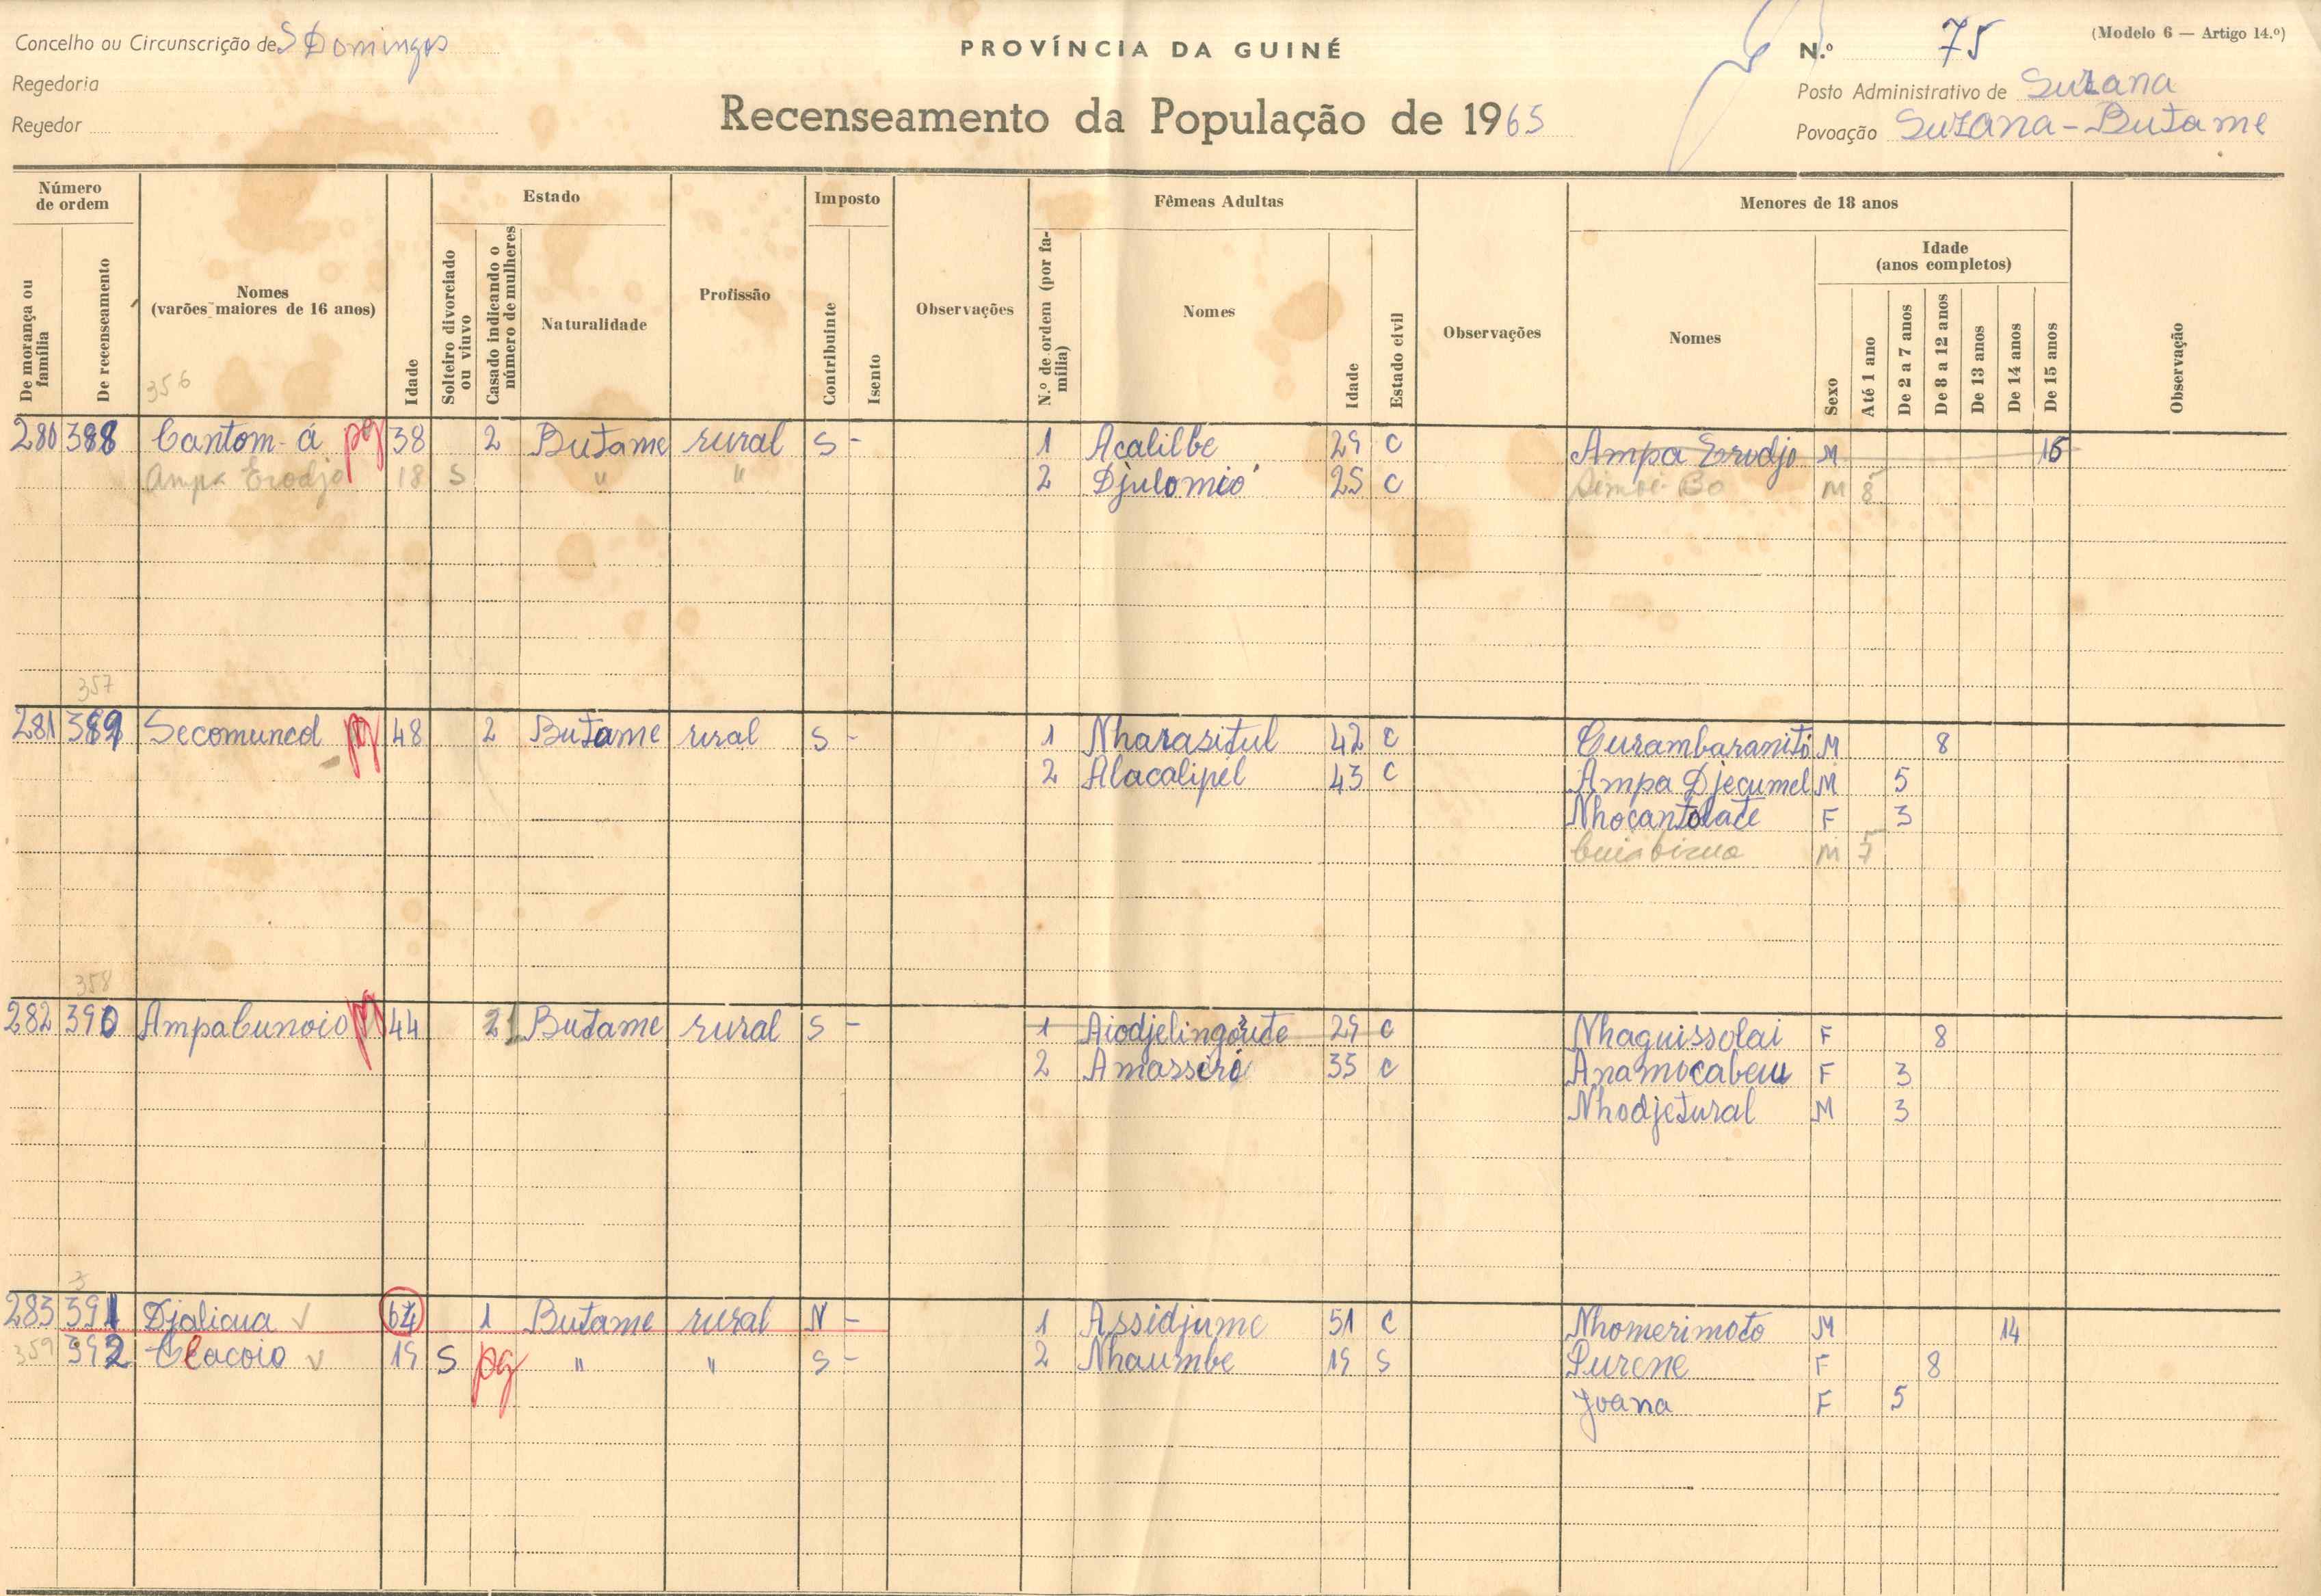 Concelho ou Circunscrição de S Domingos
Regedoria
Regedor
PROVÍNCIA DA GUINÉ
Recenseamento da População de 1965
N.º 75
(Modelo 6 — Artigo 14.º)
Posto Administrativo de Suzana
Povoação Suzana-Butame
Número de ordem
De morança ou família
De recenseamento
Nomes
(varões maiores de 16 anos)
Idade
Estado
Solteiro divorciado ou viuvo
Casado indicando o número de mulheres
Naturalidade
Profissão
Imposto
Contribuinte
Isento
Observações
Fêmeas Adultas
N.º de ordem (por família)
Nomes
Idade
Estado civil
Observações
Menores de 18 anos
Nomes
Sexo
Idade
(anos completos)
Até 1 ano
De 2 a 7 anos
De 8 a 12 anos
De 13 anos
De 14 anos
De 15 anos
Observação
356
280 388 Cantom-á pg 38 2 Butame rural S - 1 Acalilbe 29 C Ampa Erodjo M 15
Ampa Erodjo 18 S " " 2 Djulomió 25 C M 8
357
281 389 Secomuncol pg 48 2 Butame rural S - 1 Nharasitul 42 C Curambaranitó M 8
2 Alacalipél 43 C Ampa Djecumel M 5
Nhocantolate F 3
M
358
282 390 AmpaCunoio pg 44 Butame rural S - 1 Aiodjelingoute 29 C Nhaguissolai F 8
2 Amasseró 35 C Anamocabeu F 3
Nhodjetural M 3
283 391 Djalicua 64 1 Butame rural N - 1 Assidjume 51 C Nhomerimoto M 14
359 392 Elacoio 19 S pg " " S - 2 Nhaumbe 19 S Purene F 8
Joana F 5